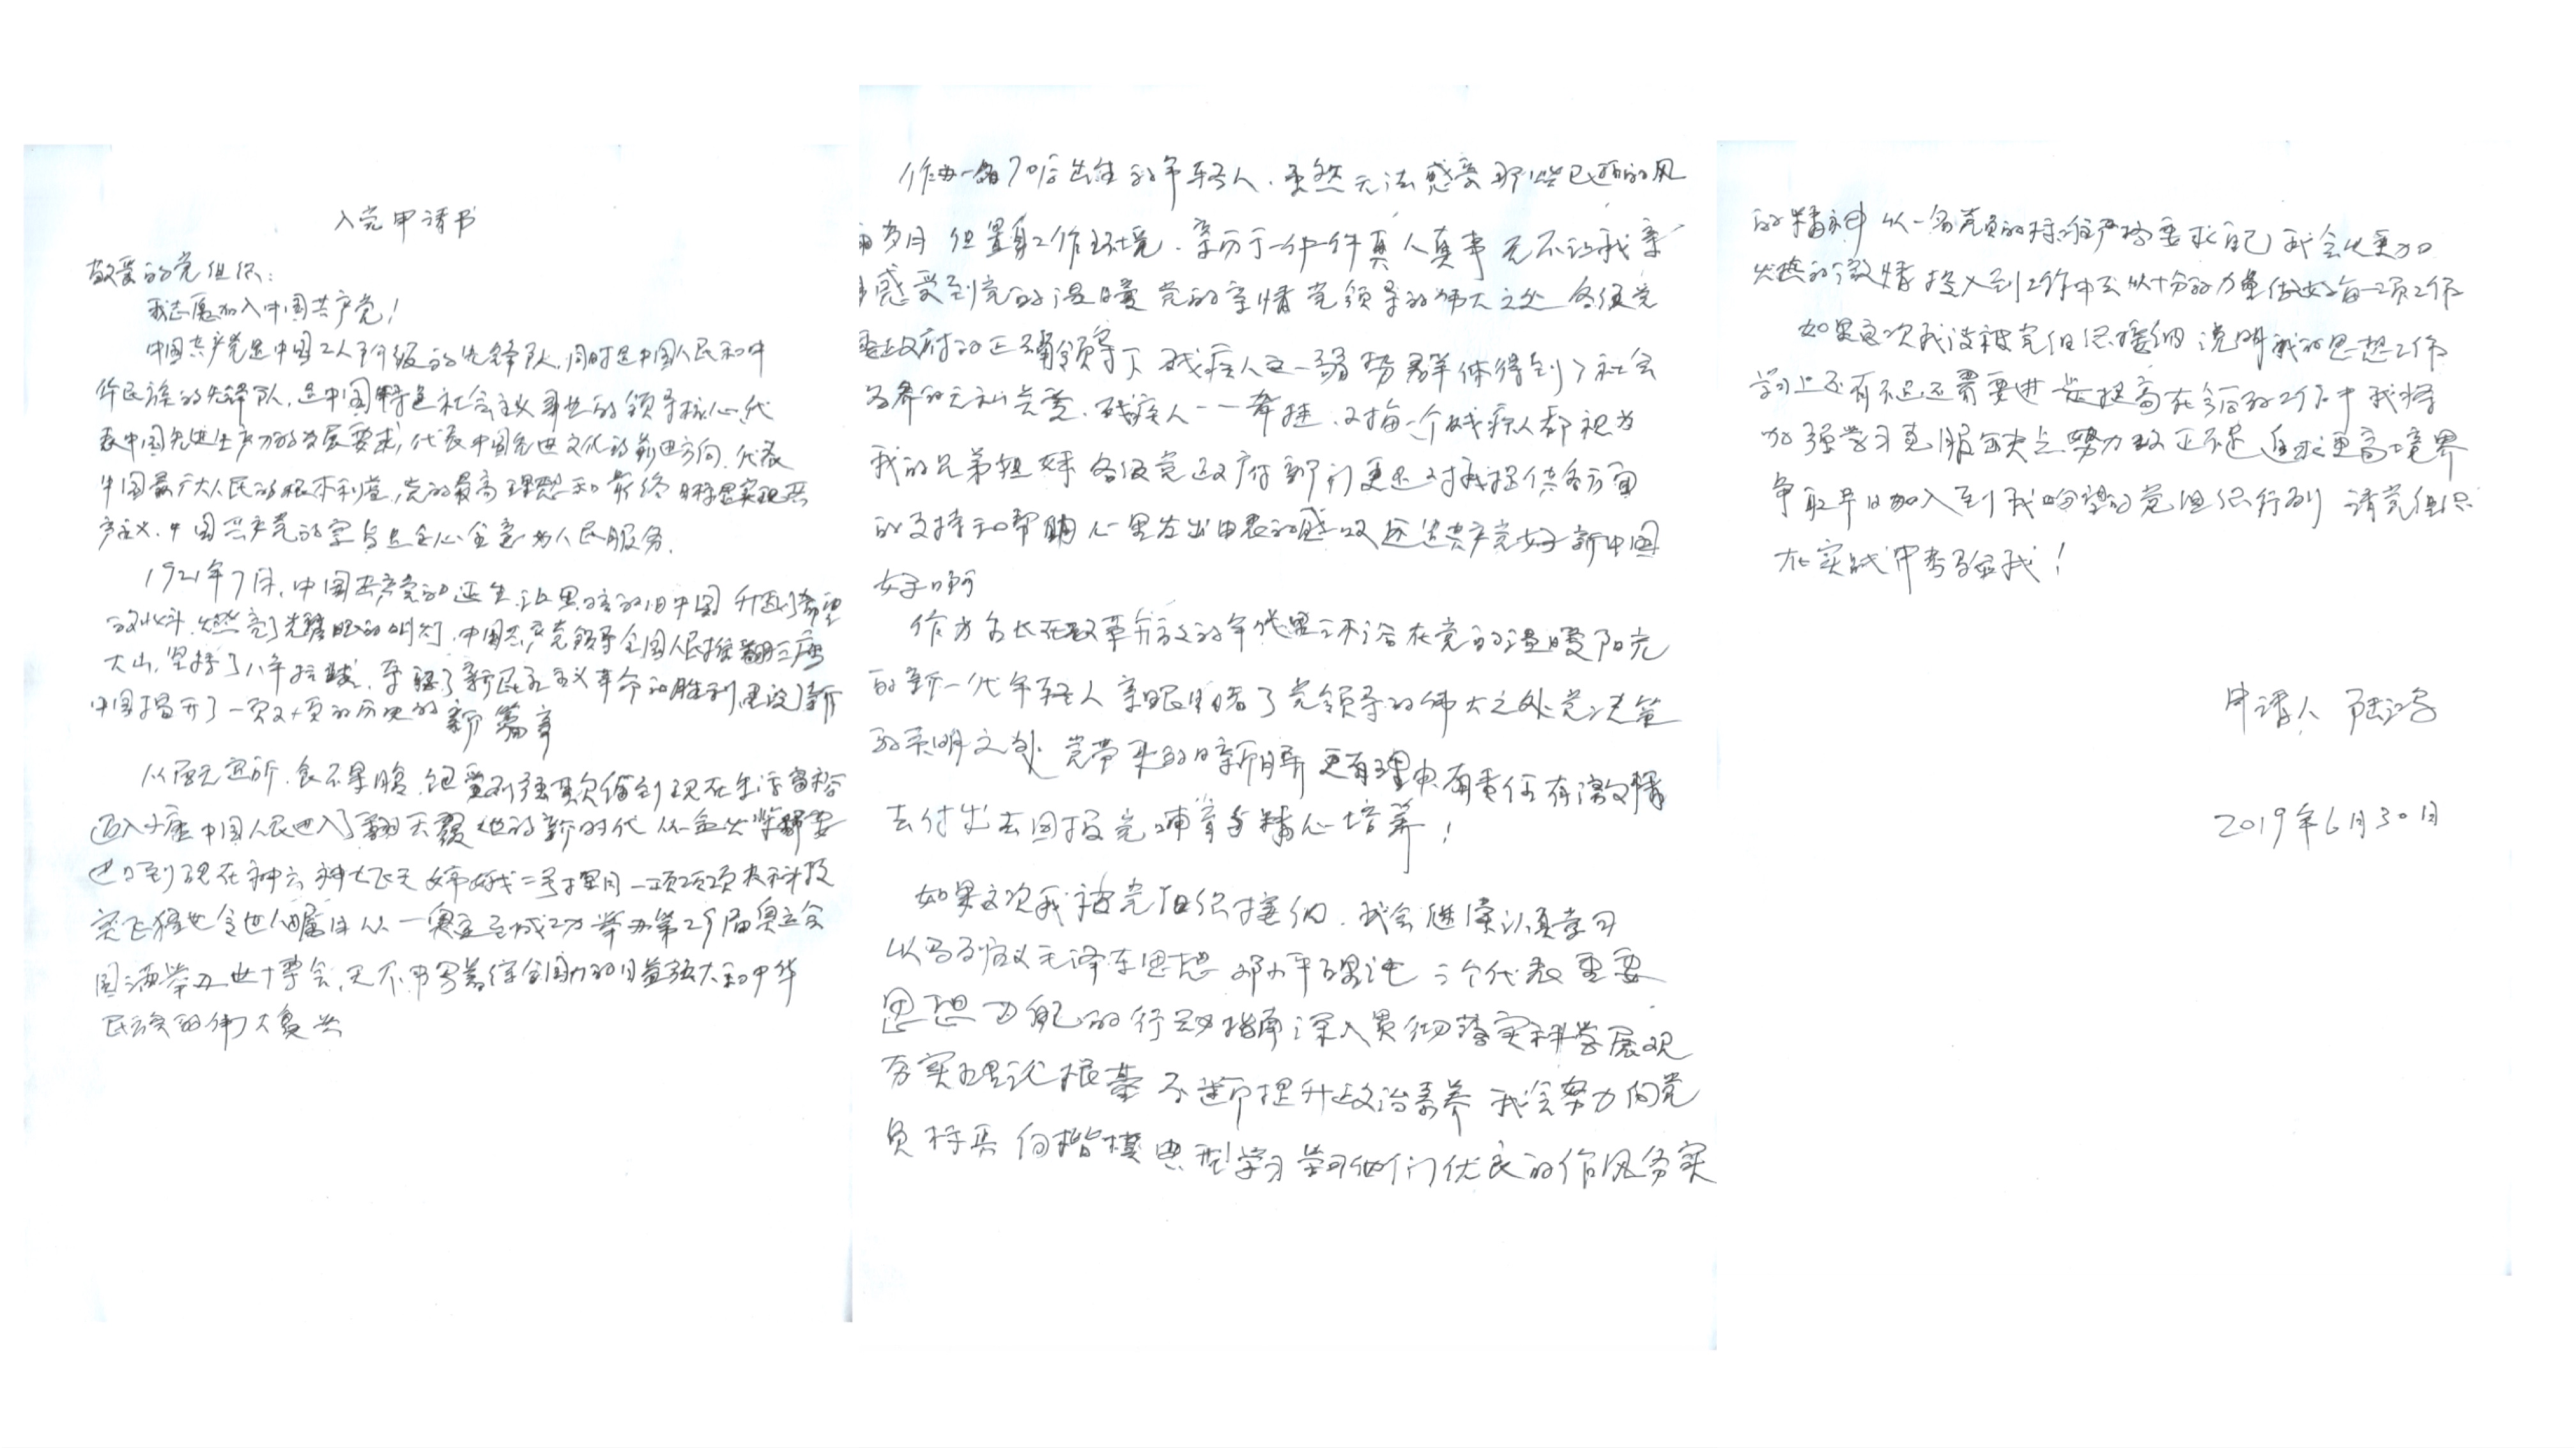 入党申请书
敬爱的党组织:
我志愿加入中国共产党!
中国共产党是中国工人阶级的先锋队,同时是中国人民和中
华民族的先锋队,是中国特色社会主义事业的领导核心,代
表中国先进生产力的发展要求,代表中国先进文化的前进方向,代表
中国最广大人民的根本利益,党的最高理想和最终目标是实现共
产主义.中国共产党的宗旨是全心全意为人民服务.
1921年7月,中国共产党的诞生,让黑暗的旧中国升起了希望
的北斗,燃亮了光耀眼的明灯,中国共产党领导全国人民推翻三座
大山,坚持了八年抗战,夺取了新民主主义革命的胜利,建设了新
中国揭开了一页又一页的历史的新篇章
从居无定所,食不果腹,饱受列强欺侮到现在生活富裕
迈入小康中国人民进入了翻天覆地的新时代 从一盒火柴都要
进口到现在神六神七飞天嫦娥二号探月一项项高科技
突飞猛进令世人瞩目从一奥运至成功举办第29届奥运会
圆满举办世博会,无不书写着综合国力的日益强大和中华
民族的伟大复兴
作为一名70后出生的年轻人,虽然无法感受那些已逝的风
雨岁月 但置身工作环境,亲历于一件件真人真事 无不让我亲
身感受到党的温暖 党的亲情 党领导的伟大之处 各级党
委政府的正确领导下 残疾人这一弱势群体得到了社会
各界的无私关爱,残疾人一一牵挂,对每一个残疾人都视为
我的兄弟姐妹 各级党政府部门更是对我提供各方面
的支持和帮助 心里发出由衷的感叹 还是共产党好 新中国
好啊
作为名长在改革开放的年代里 沐浴在党的温暖阳光
的新一代年轻人 亲眼目睹了党领导的伟大之处党决策
的英明之处 党带来的日新月异 更有理由有责任有激情
去付出去回报党哺育与精心培养!
如果这次我被党组织接纳,我会继续认真学习
以马列主义毛泽东思想 邓小平理论 三个代表重要
思想为自己的行动指南 深入贯彻落实科学展观
夯实理论根基 不断提升政治素养 我会努力向党
员标兵 向楷模典型学习 学习他们优良的作风务实
的精神 以一名党员的标准严格要求自己 我会以更加
火热的激情 投入到工作中去 以十分的力量做好每一项工作
如果这次我没被党组织接纳 说明我的思想工作
学习上还有不足还需要进一步提高在今后的工作中我将
加强学习克服缺点努力改正不足 追求更高境界
争取早日加入到我盼望的党组织行列 请党组织
在实践中考验我!
申请人
2019年6月30日